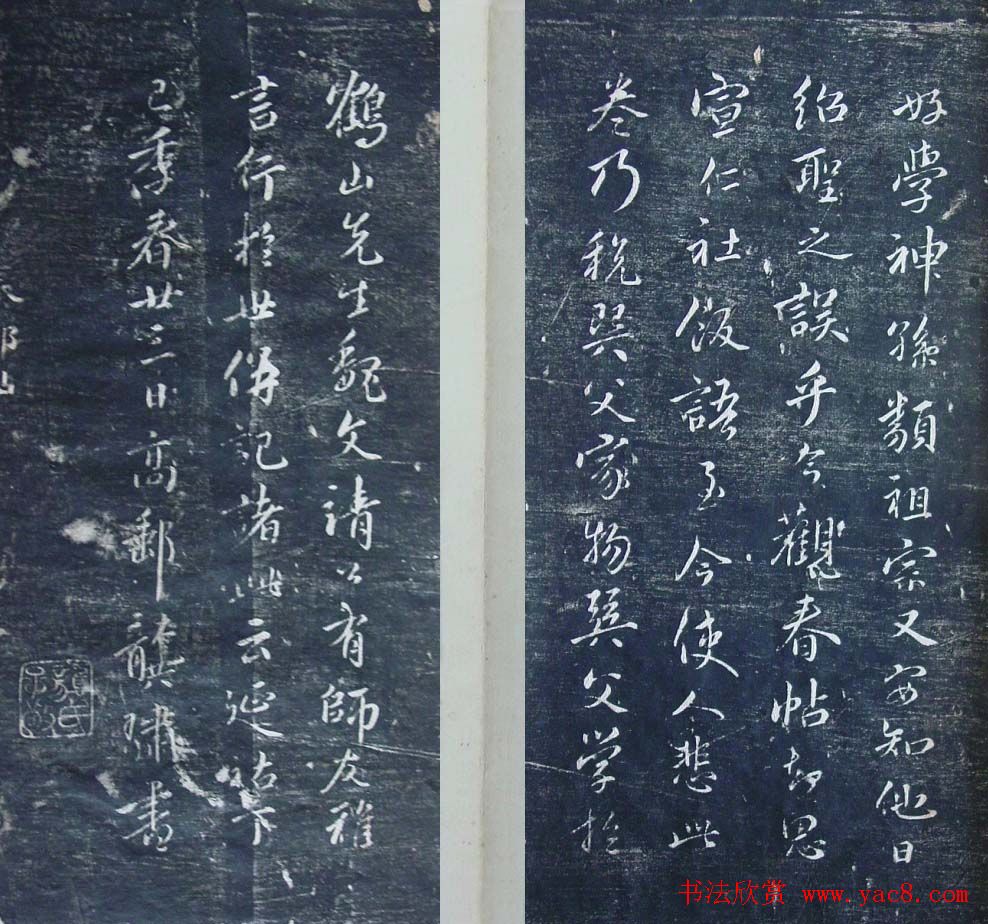 好學神孫類祖宗又安知他日
紹聖之誤乎今觀春帖却思
宣仁社飯語至今使人悲此
卷乃稅巽父家物巽父學於
鶴山先生魏文靖公有師友雅
言行於世併記諸此云延祐丁
巳季春廿三日高郵龔璛書
龔氏子敬
书法欣赏 www.yac8.com